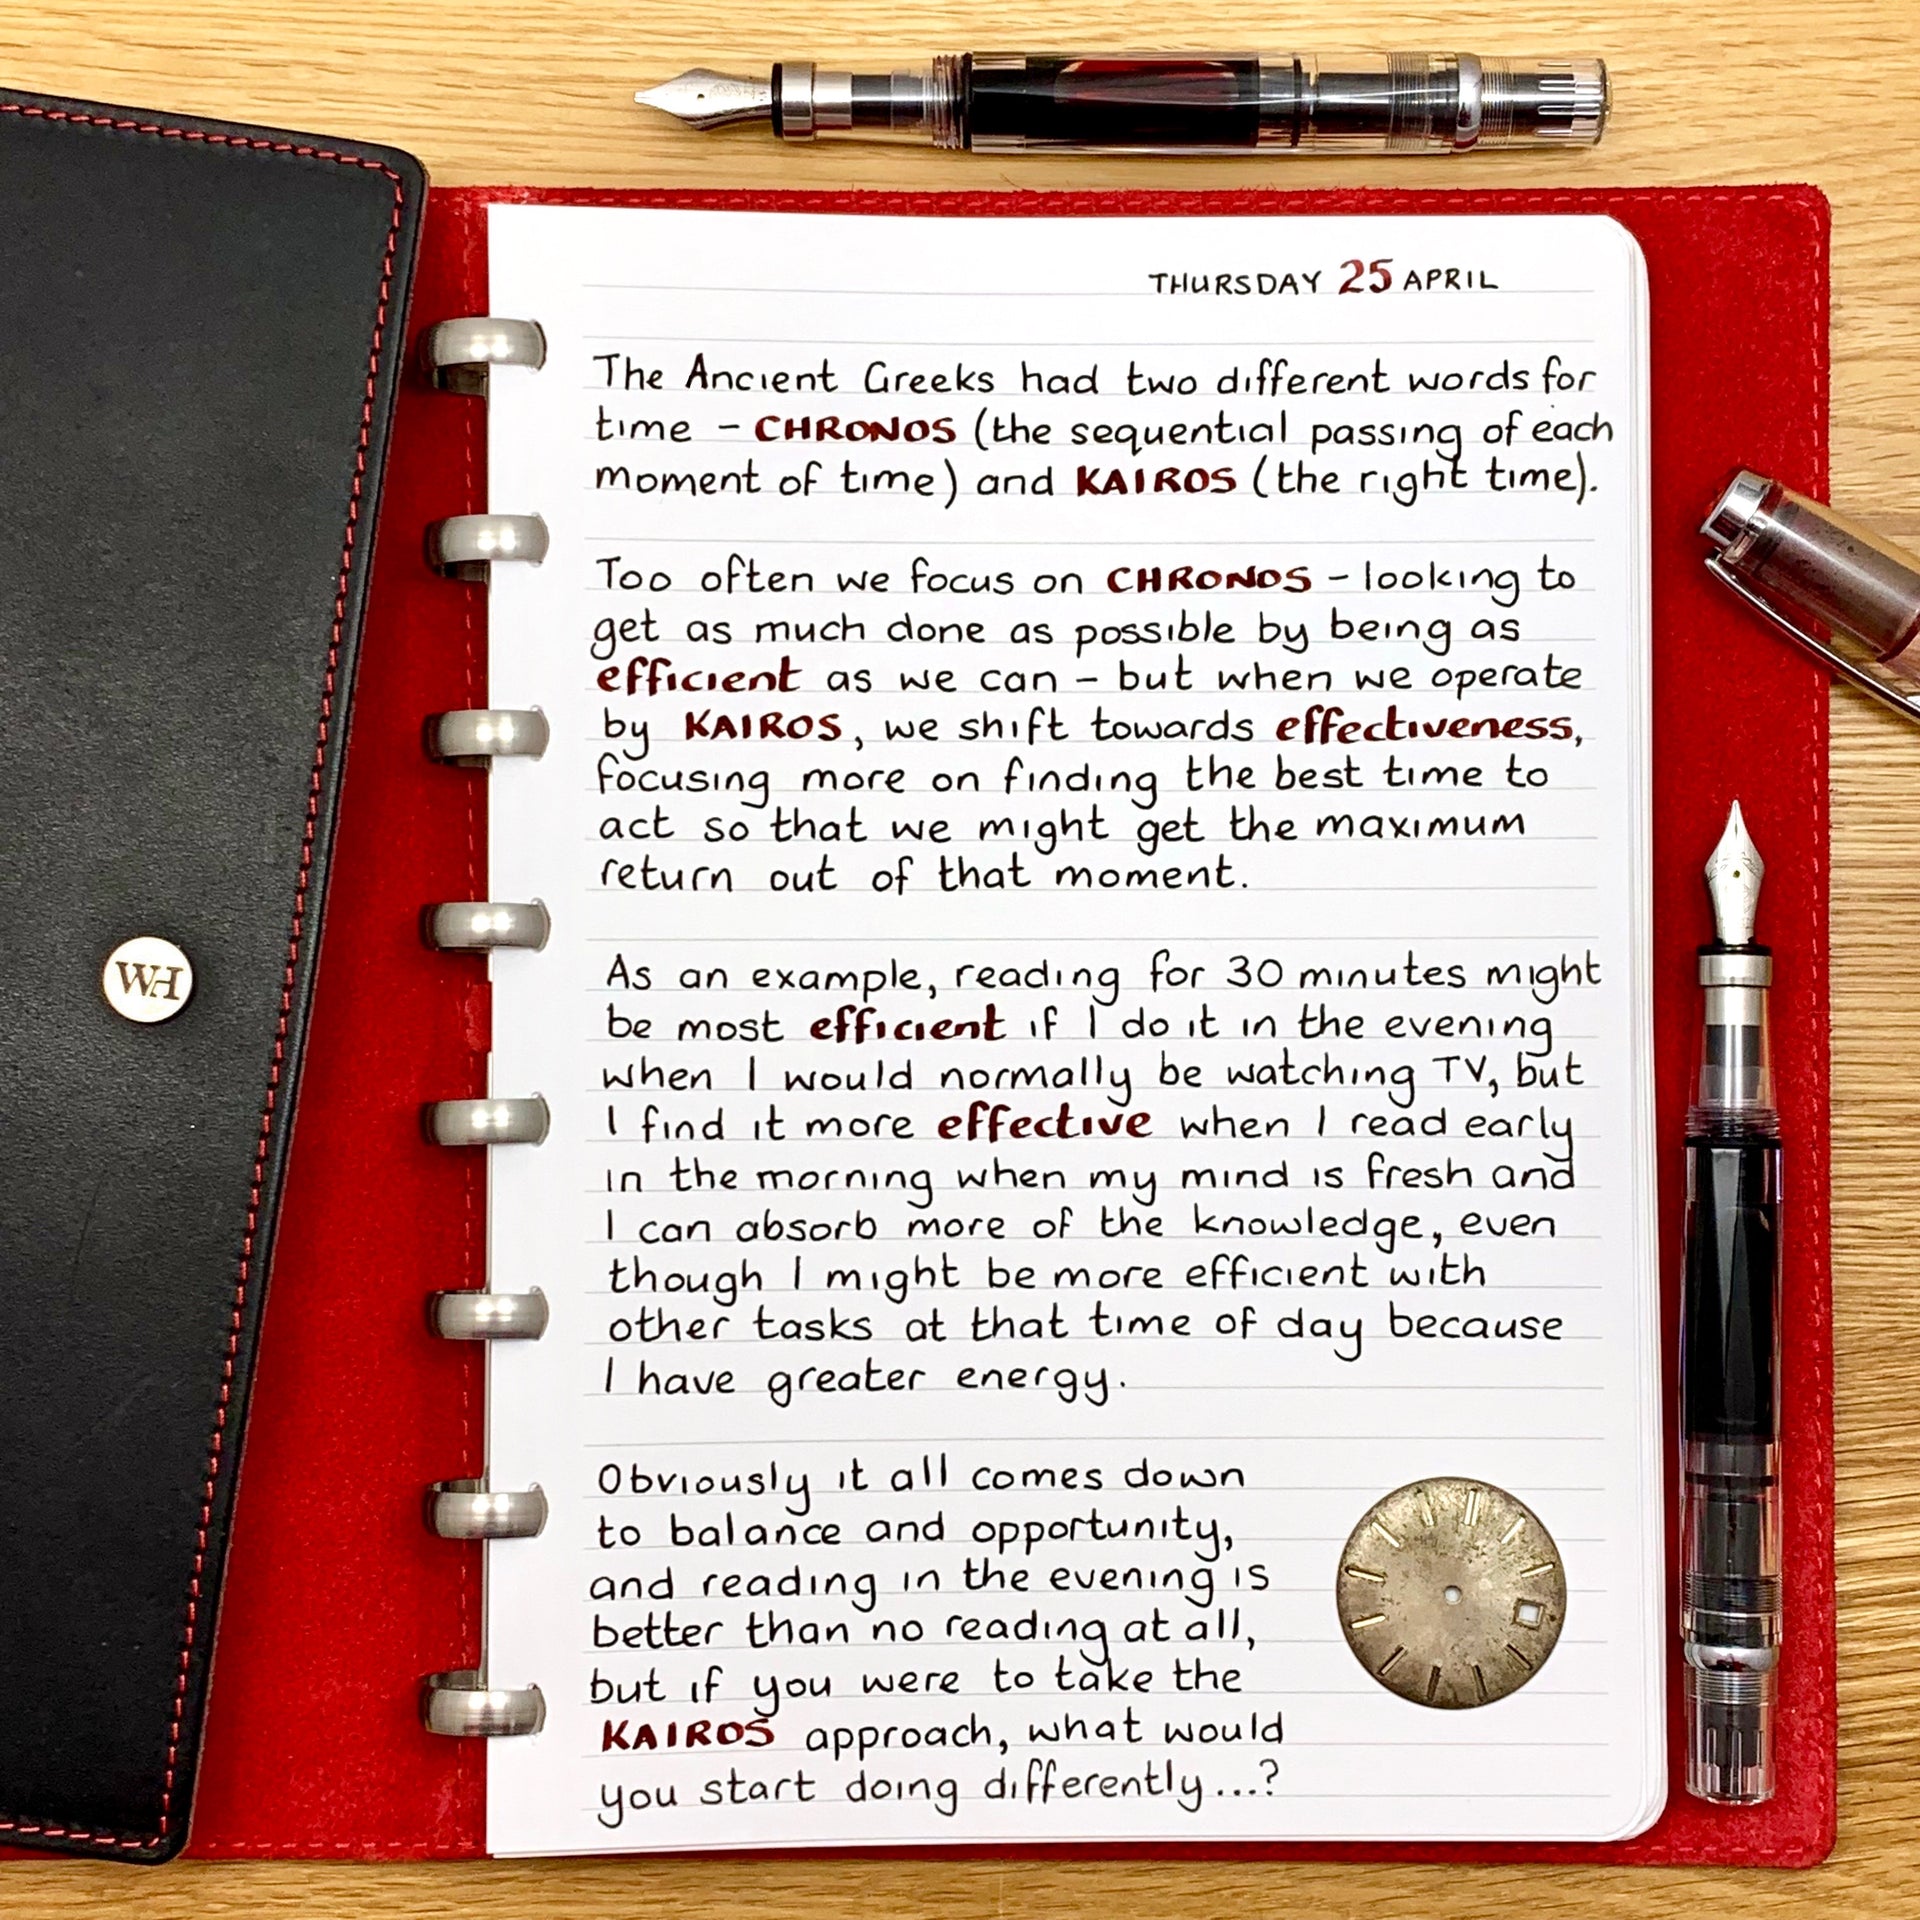 THURSDAY 25 APRIL
The Ancient Greeks had two different words for
time - CHRONOS (the sequential passing of each
moment of time) and KAIROS (the right time).
Too often we focus on CHRONOS - looking to
get as much done as possible by being as
efficient as we can - but when we operate
by KAIROS, we shift towards effectiveness,
focusing more on finding the best time to
act so that we might get the maximum
return out of that moment.
As an example, reading for 30 minutes might
be most efficient if I do it in the evening
when I would normally be watching TV, but
I find it more effective when I read early
in the morning when my mind is fresh and
I can absorb more of the knowledge, even
though I might be more efficient with
other tasks at that time of day because
I have greater energy.
Obviously it all comes down
to balance and opportunity,
and reading in the evening is
better than no reading at all,
but if you were to take the
KAIROS approach, what would
you start doing differently...?
WH